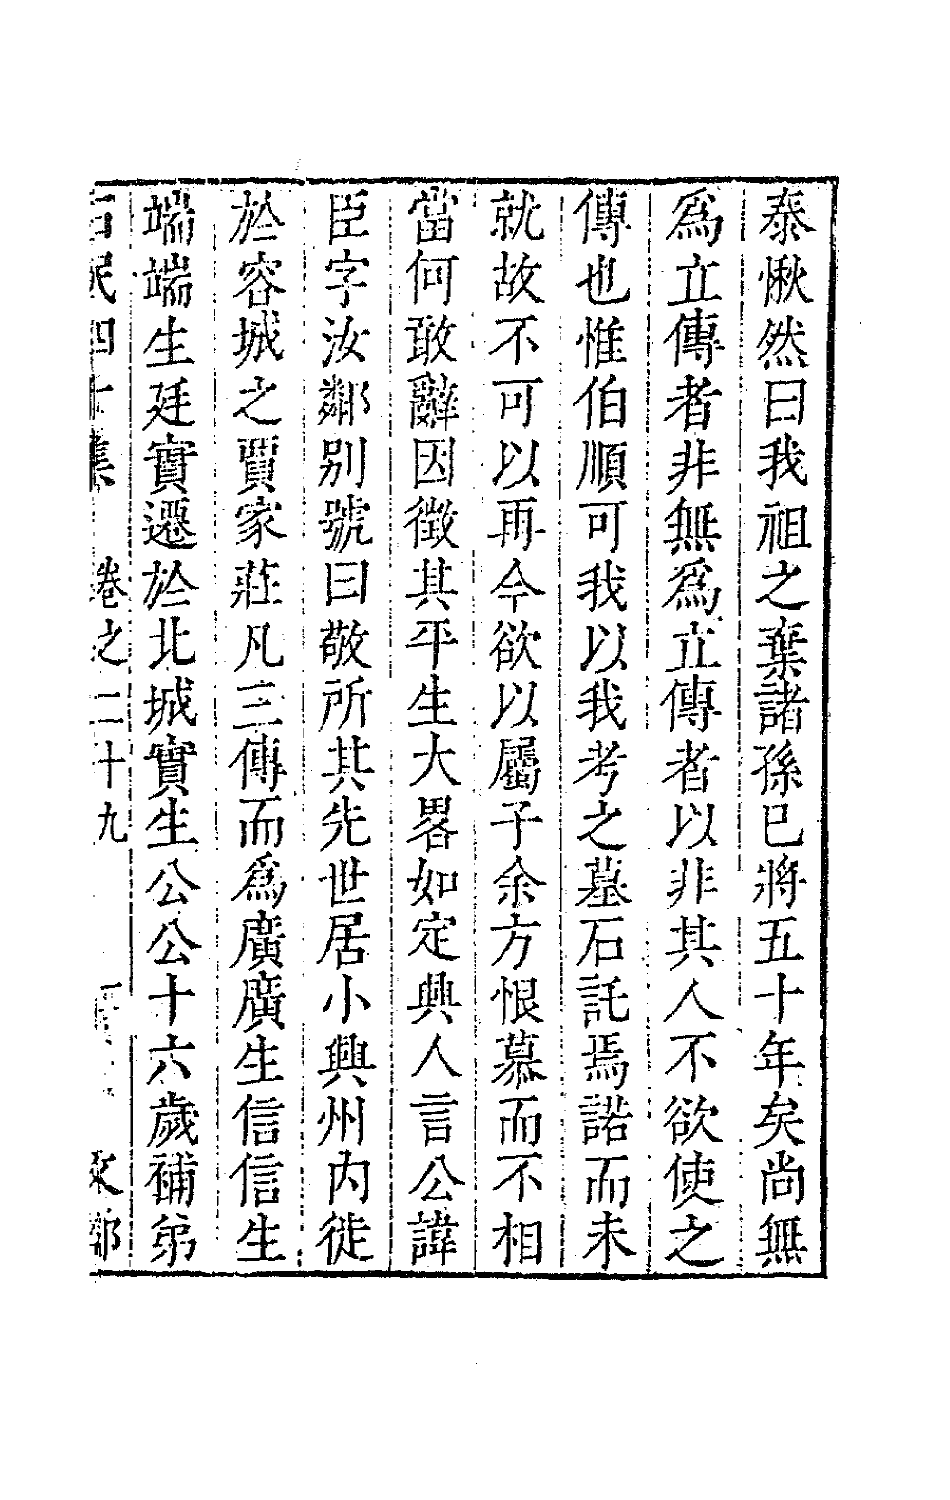 泰愀然曰我祖之棄諸孫已將五十年矣尚無
爲立傳者非無爲立傳者以非其人不欲使之
傳也惟伯順可我以我考之墓石託焉諾而未
就故不可以再今欲以屬子余方恨慕而不相
當何敢辭因徵其平生大畧如定興人言公諱
臣字汝鄰別號曰敬所其先世居小興州內徙
於容城之賈家莊凡三傳而爲廣廣生信信生
端端生廷實遷於北城實生公公十六歲補弟
石民四十集 卷之二十九